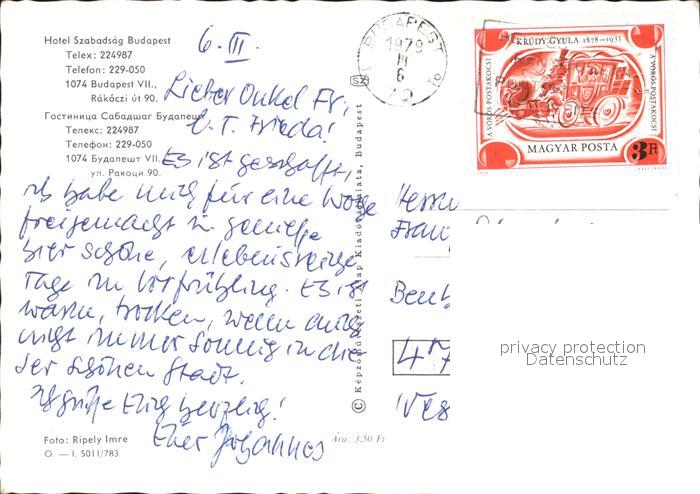 Hotel Szabadság Budapest
Telex: 224987
Telefon: 229-050
1074 Budapest VII.,
Rákóczi út 90.
Гостиница Сабадшаг Будапешт
Телекс: 224987
Телефон: 229-050
1074 Будапешт VII.
ул. Ракоци 90.
6. III.
Lieber Onkel Fr,
l. T. Frieda!
Es ist geschafft,
ich habe mich für eine Woche
freigemacht u. genieße
hier schöne, erlebnisreiche
Tage im Vorfrühling. Es ist
warm, trocken, wenn auch
nicht immer sonnig in die-
ser schönen Stadt.
Ich grüße Euch herzlich!
Euer Johannes
Foto: Ripely Imre
O. — I. 5011/783
Ára: 3,50 Ft
© Képzőművészeti Alap Kiadóvállalata, Budapest
SZ
BUDAPEST
1979
III
6
KRÚDY GYULA 1878-1933
A VÖRÖS POSTAKOCSI
A VÖRÖS POSTAKOCSI
MAGYAR POSTA
3Ft
Herrn
Fran
47
privacy protection
Datenschutz